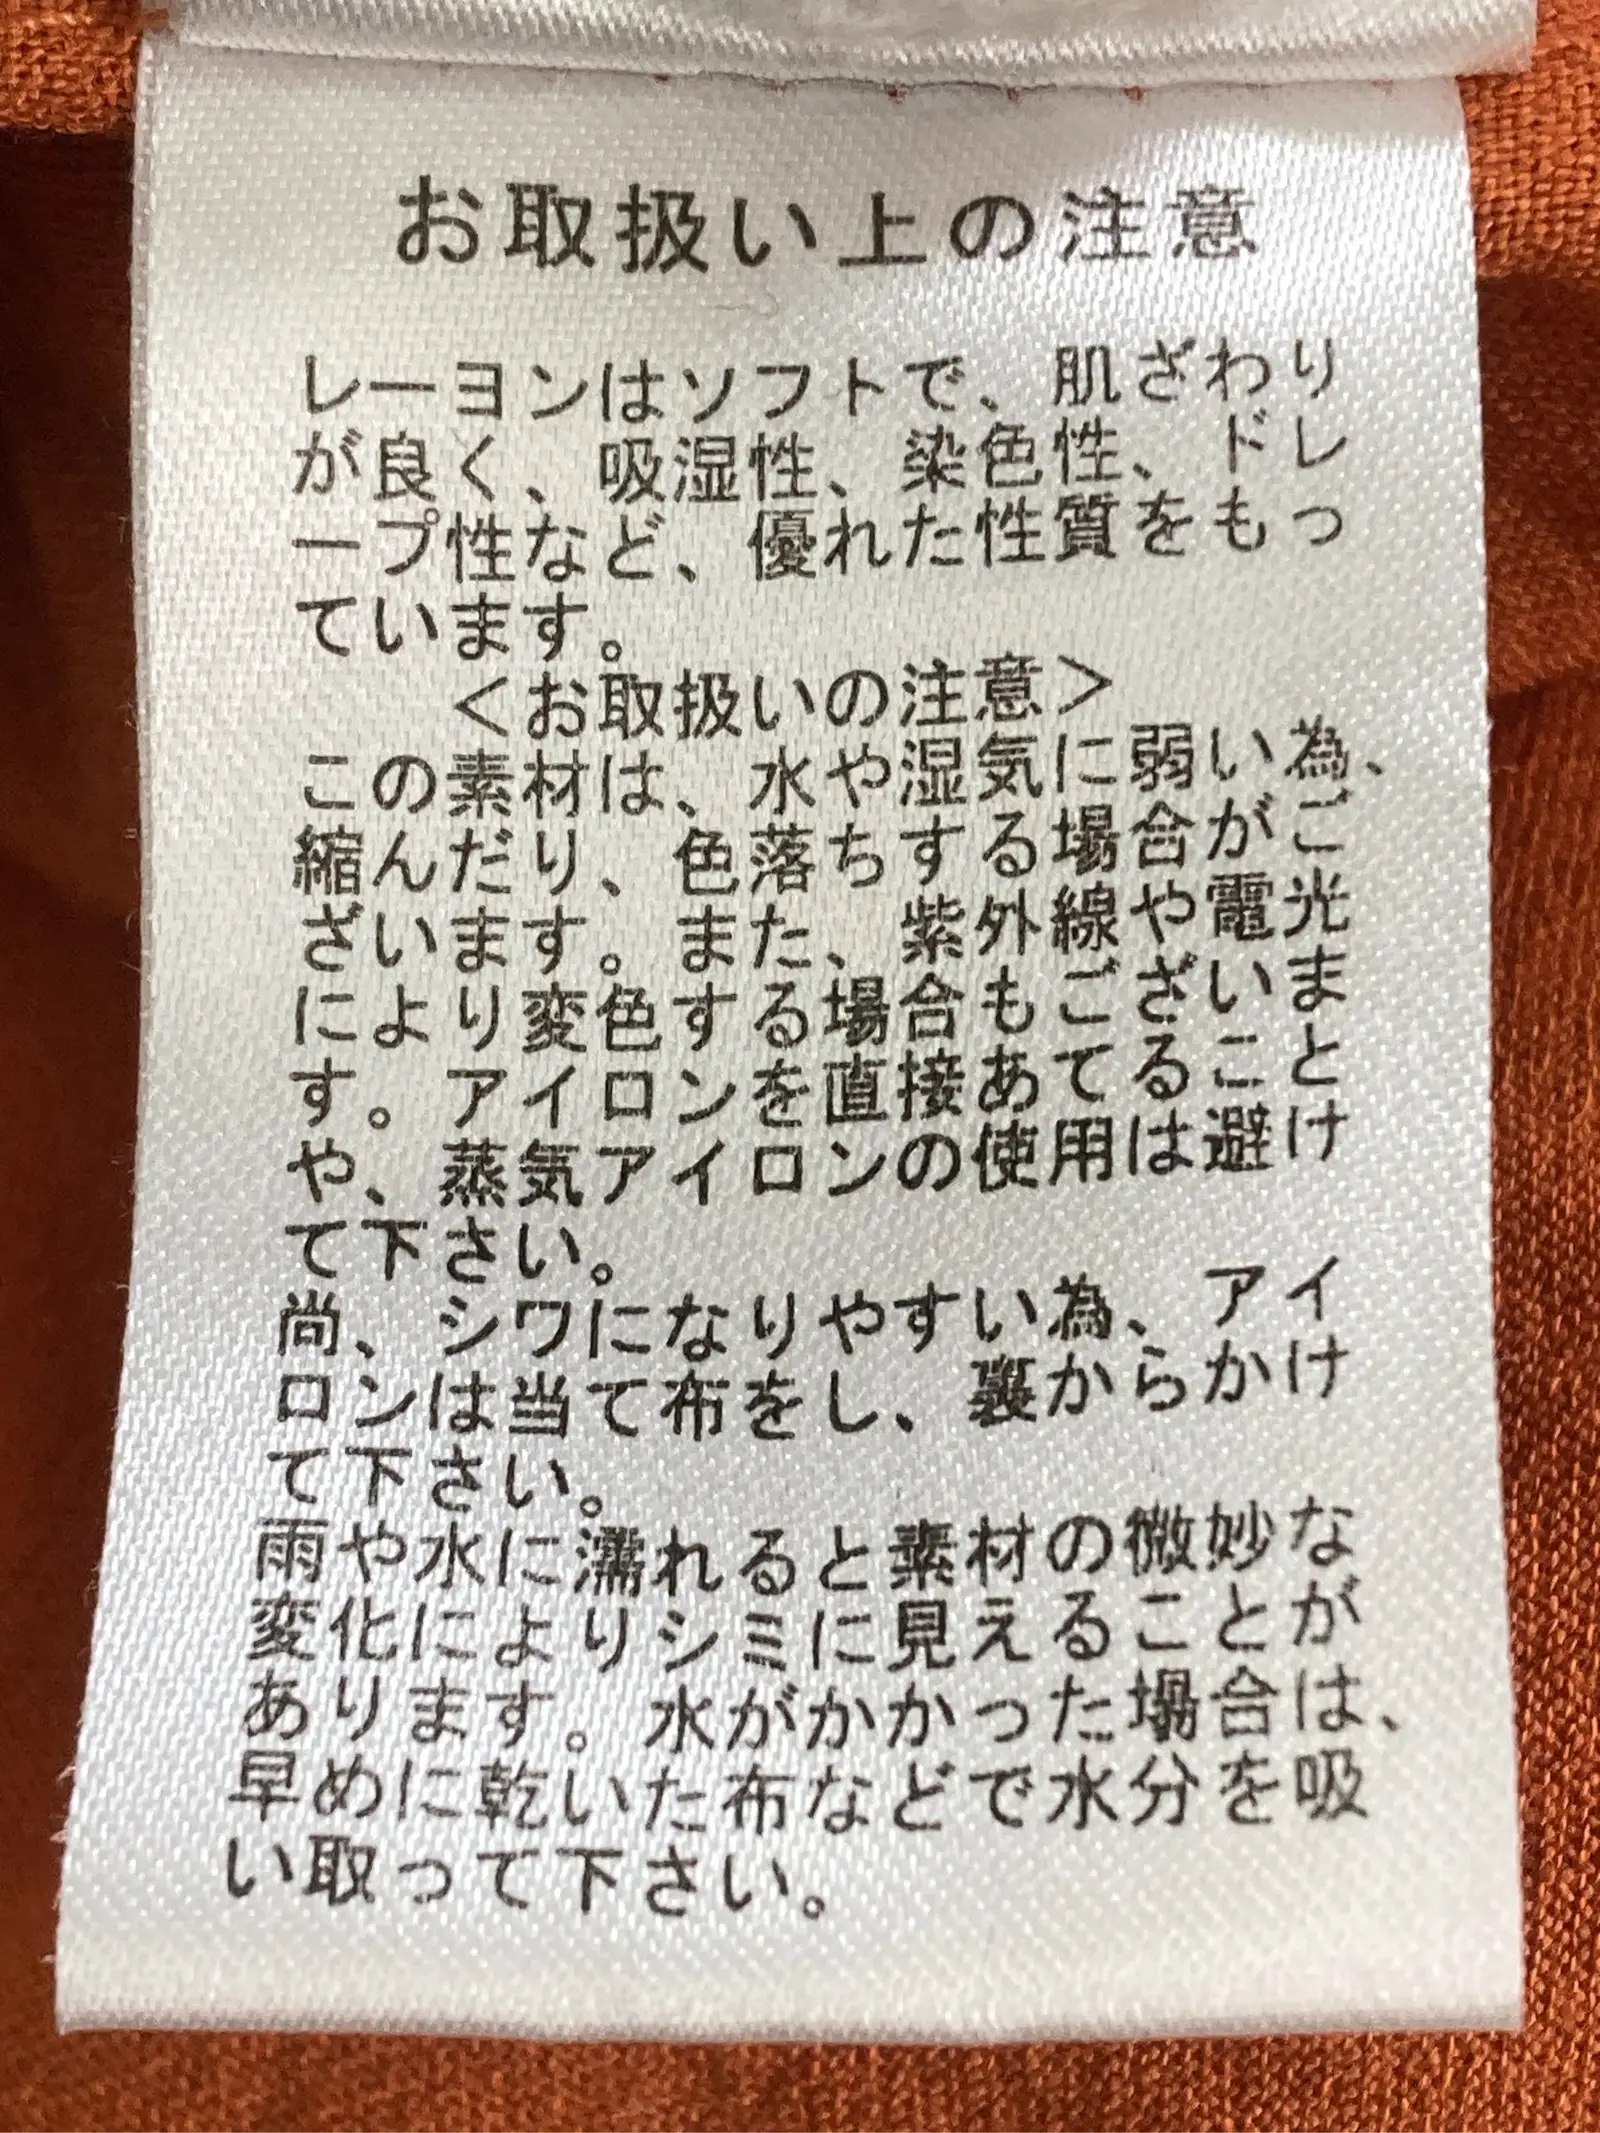 お取扱い上の注意
レーヨンはソフトで、肌ざわり
が良く、吸湿性、染色性、ドレ
ープ性など、優れた性質をもっ
ています。
＜お取扱いの注意＞
この素材は、水や湿気に弱い為、
縮んだり、色落ちする場合がご
ざいます。また、紫外線や電光
により変色する場合もございま
す。アイロンを直接あてること
や、蒸気アイロンの使用は避け
て下さい。
尚、シワになりやすい為、アイ
ロンは当て布をし、裏からかけ
て下さい。
雨や水に濡れると素材の微妙な
変化によりシミに見えることが
あります。水がかかった場合は、
早めに乾いた布などで水分を吸
い取って下さい。